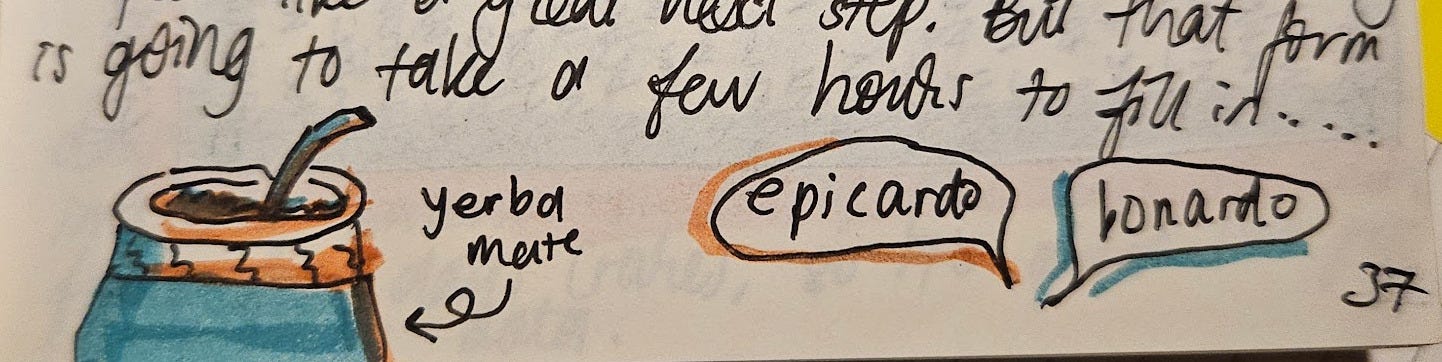 like a great next step. But that form
is going to take a few hours to fill in....
yerba
mate
epicardo
bonardo
37